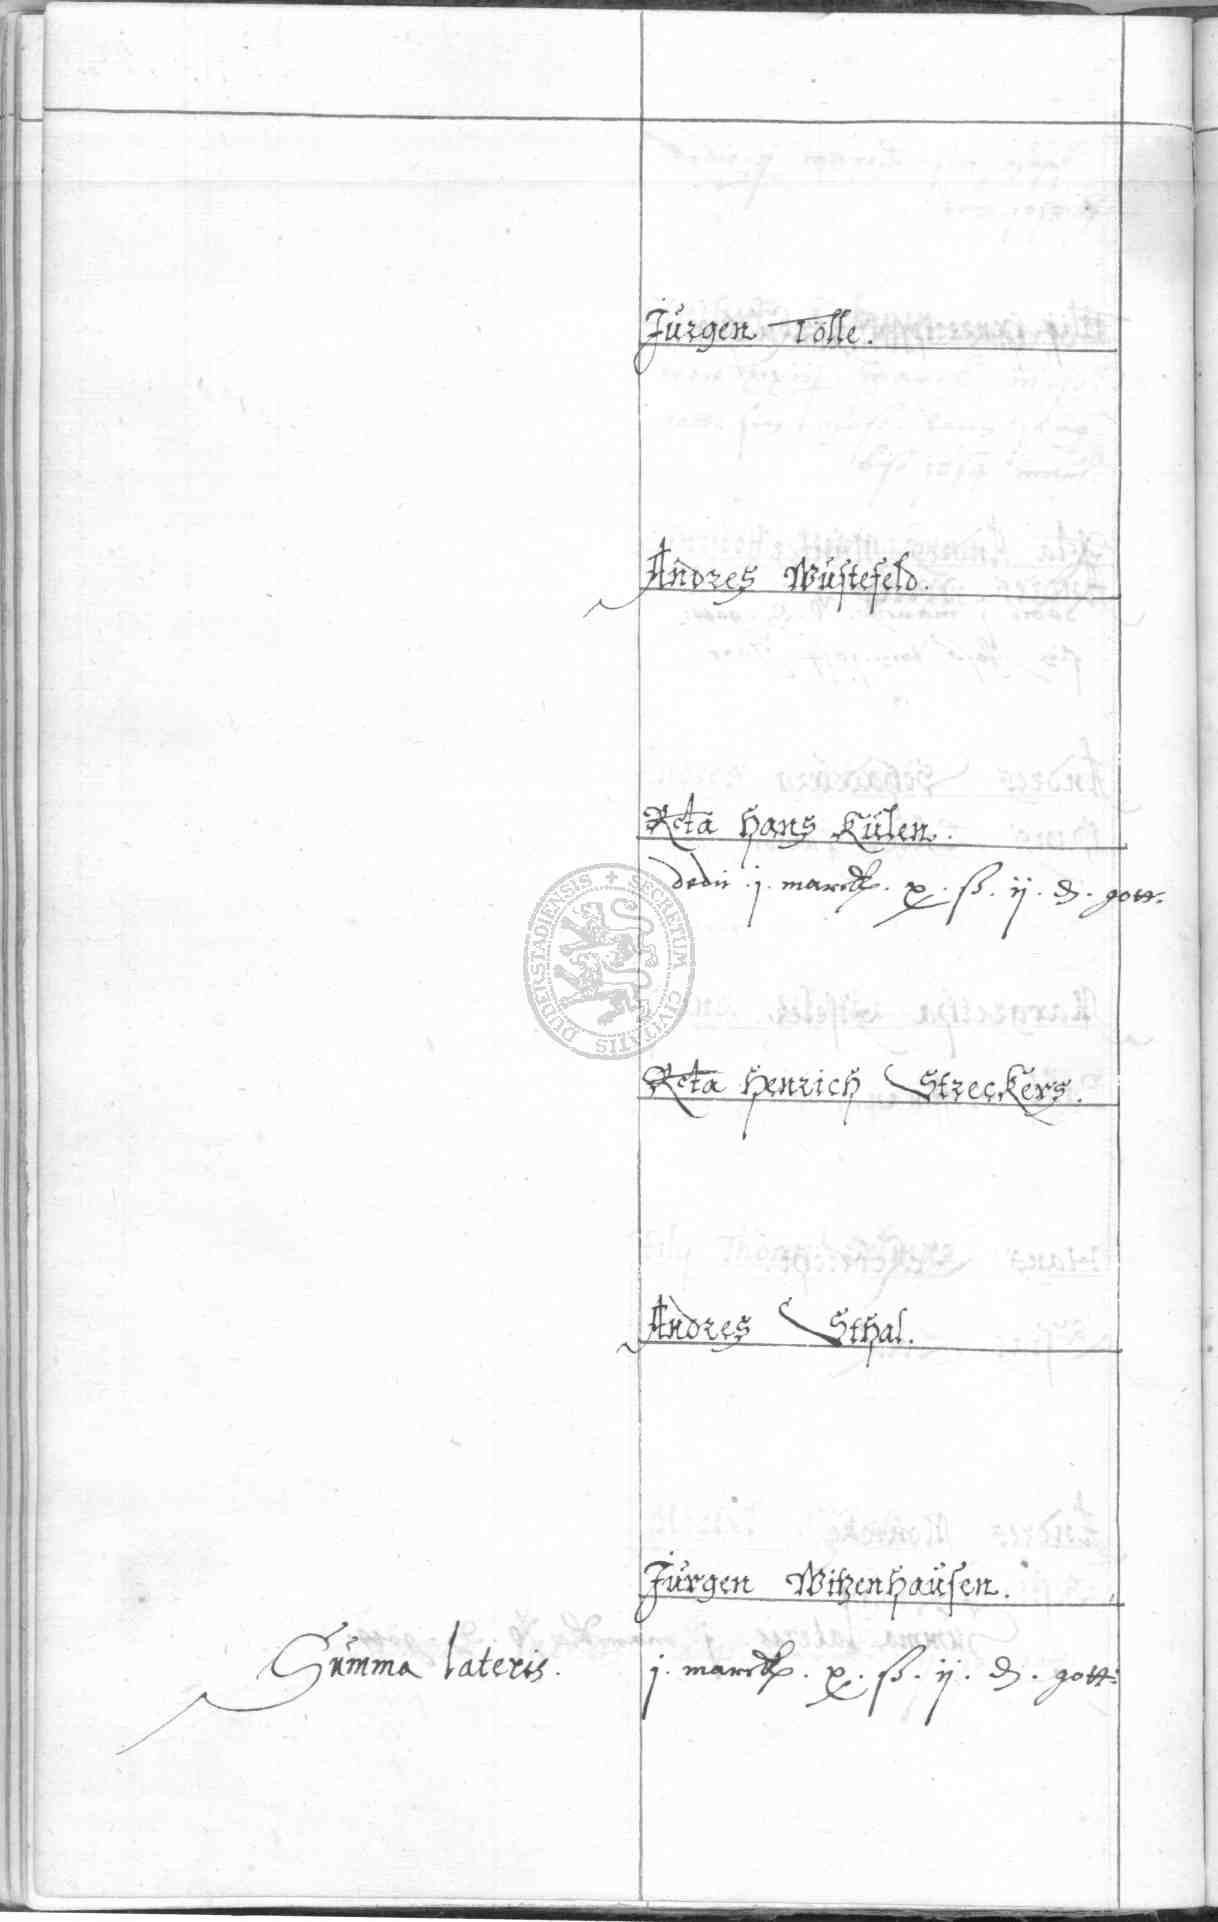 Jürgen Tölle.
Andres Wüstefeld.
Rcta Hans Külen.
dedit . j . marck . x . ß . ij . d . gott.
SECRETUM CIVITATIS DUDERSTADIENSIS
Rcta Henrich Streckers.
Andres Sthal.
Jürgen Witzenhaüsen.
Summa lateris. j . marck . x . ß . ij . d . gott: